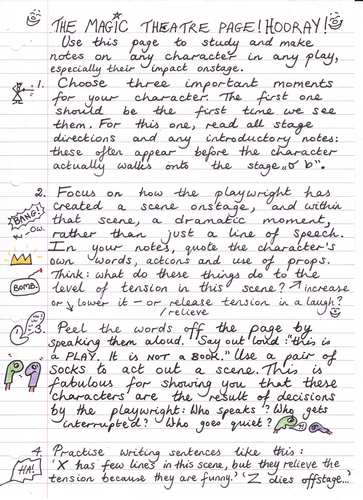 THE MAGIC THEATRE PAGE! HOORAY!
Use this page to study and make
notes on any character in any play,
especially their impact onstage.
1. Choose three important moments
for your character. The first one
should be the first time we see
them. For this one, read all stage
directions and any introductory notes:
these often appear before the character
actually walks onto the stage
2. Focus on how the playwright has
created a scene onstage, and within
that scene, a dramatic moment,
rather than just a line of speech.
In your notes, quote the character's
own words, actions and use of props.
Think: what do these things do to the
level of tension in this scene? increase
or lower it – or release tension in a laugh?
/relieve
BANG!
OW.
BOMB.
3. Peel the words off the page by
speaking them aloud. Say out loud: "this is
a PLAY. It is NOT a BOOK." Use a pair of
socks to act out a scene. This is
fabulous for showing you that these
characters are the result of decisions
by the playwright: Who speaks? Who gets
interrupted? Who goes quiet?
4. Practise writing sentences like this:
'X has few lines in this scene, but they relieve the
tension because they are funny.' 'Z dies offstage...'
HA!